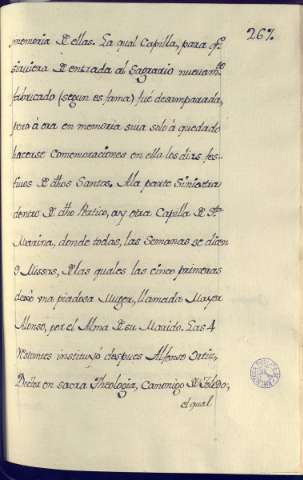 267.
memoria D ellas. La qual Capilla, para qe.
sirviera D entrada al Sagrario nuevamte.
fabricado (segun es fama) fué desamparada,
pero á ora en memoria sua solo á quedado
hacerse Comemoraciones en ella los dias fes-
tivos D dhos Santos. Ala parte Siniestra
dentro D dho Portico, ay otra Capilla D Sta.
Marina, donde todas, las Semanas se dicen
9 Missas, D las quales las cinco primeras
dexó una piadosa Muger, llamada Mayor
Alonso, por el Alma D su Marido. Las 4
restantes instituyó despues Alfonso Ortiz,
Doctor en sacra Theologia, Canonigo D Toledo,
el qual